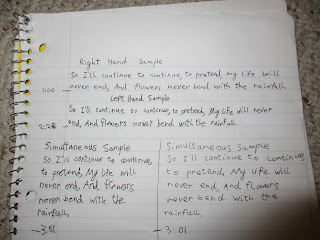 Right Hand Sample
So I'll continue to continue, to pretend, my life will
1:00 never end, And flowers never bend with the rainfall.
Left Hand Sample
So I'll continue to continue, to pretend, My life will never
2:28 end, And flowers never bend with the rainfall.
Simultaneous Sample
So I'll continue to continue,
to pretend, My life will
never end, And flowers
never bend with the
rainfall.
—3:01
Simultaneous Sample
So I'll continue to continue,
to pretend, My life will
never end, And flowers
never bend with the
rainfall.
—3:01